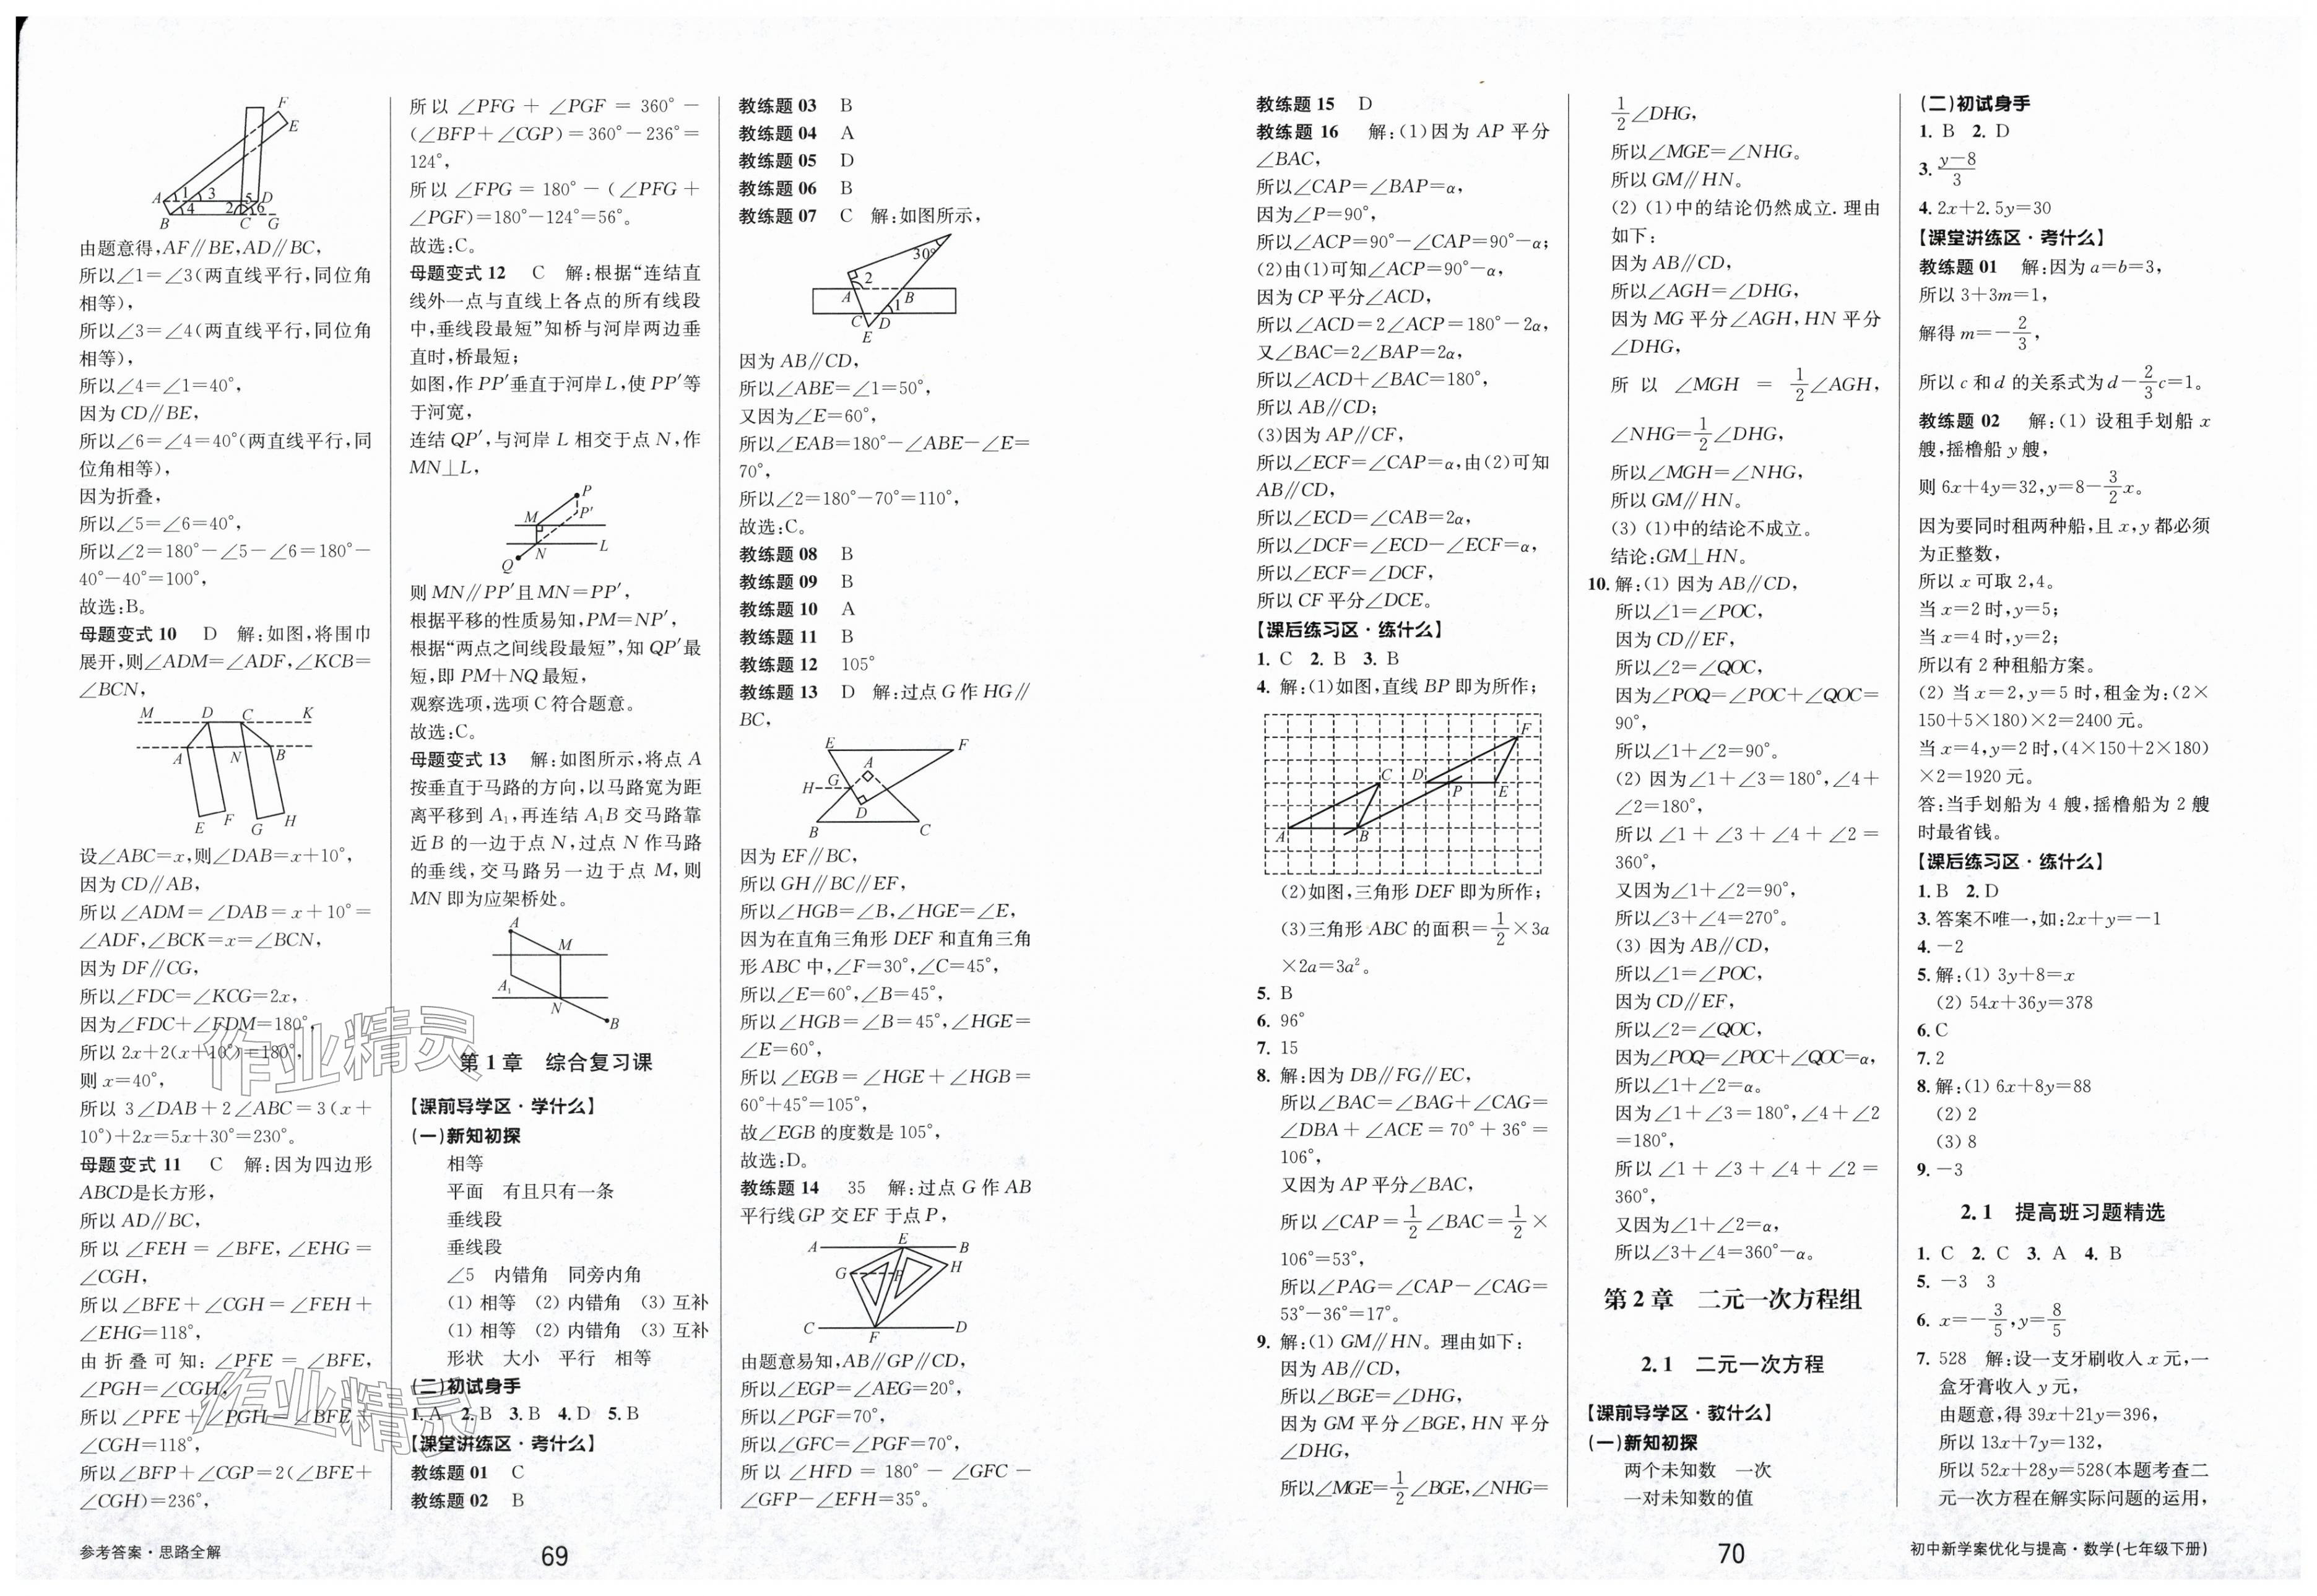 F
E
A 1 3 5 D
B 4 2 6
C G
由题意得,AF∥BE,AD∥BC,
所以∠1=∠3(两直线平行,同位角
相等),
所以∠3=∠4(两直线平行,同位角
相等),
所以∠4=∠1=40°,
因为CD∥BE,
所以∠6=∠4=40°(两直线平行,同
位角相等),
因为折叠,
所以∠5=∠6=40°,
所以∠2=180°-∠5-∠6=180°-
40°-40°=100°,
故选:B。
母题变式 10 D 解:如图,将围巾
展开,则∠ADM=∠ADF,∠KCB=
∠BCN,
M D C K
A N B
E F G H
设∠ABC=x,则∠DAB=x+10°,
因为CD∥AB,
所以∠ADM=∠DAB=x+10°=
∠ADF,∠BCK=x=∠BCN,
因为DF∥CG,
所以∠FDC=∠KCG=2x,
因为∠FDC+∠FDM=180°,
所以2x+2(x+10°)=180°,
则x=40°,
所以3∠DAB+2∠ABC=3(x+
10°)+2x=5x+30°=230°。
母题变式 11 C 解:因为四边形
ABCD是长方形,
所以AD∥BC,
所以∠FEH=∠BFE,∠EHG=
∠CGH,
所以∠BFE+∠CGH=∠FEH+
∠EHG=118°,
由折叠可知:∠PFE=∠BFE,
∠PGH=∠CGH,
所以∠PFE+∠PGH=∠BFE+
∠CGH=118°,
所以∠BFP+∠CGP=2(∠BFE+
∠CGH)=236°,
所以∠PFG+∠PGF=360°-
(∠BFP+∠CGP)=360°-236°=
124°,
所以∠FPG=180°-(∠PFG+
∠PGF)=180°-124°=56°。
故选:C。
母题变式 12 C 解:根据“连结直
线外一点与直线上各点的所有线段
中,垂线段最短”知桥与河岸两边垂
直时,桥最短;
如图,作PP′垂直于河岸L,使PP′等
于河宽,
连结QP′,与河岸L相交于点N,作
MN⊥L,
P
M P′
N L
Q
则MN∥PP′且MN=PP′,
根据平移的性质易知,PM=NP′,
根据“两点之间线段最短”,知QP′最
短,即PM+NQ最短,
观察选项,选项C符合题意。
故选:C。
母题变式 13 解:如图所示,将点A
按垂直于马路的方向,以马路宽为距
离平移到A₁,再连结A₁B交马路靠
近B的一边于点N,过点N作马路
的垂线,交马路另一边于点M,则
MN即为应架桥处。
A
M
A₁
N
B
第1章 综合复习课
【课前导学区·学什么】
(一)新知初探
相等
平面 有且只有一条
垂线段
垂线段
∠5 内错角 同旁内角
(1)相等 (2)内错角 (3)互补
(1)相等 (2)内错角 (3)互补
形状 大小 平行 相等
(二)初试身手
1. A 2. B 3. B 4. D 5. B
【课堂讲练区·考什么】
教练题 01 C
教练题 02 B
教练题 03 B
教练题 04 A
教练题 05 D
教练题 06 B
教练题 07 C 解:如图所示,
30°
2
A B
1
C D
E
因为AB∥CD,
所以∠ABE=∠1=50°,
又因为∠E=60°,
所以∠EAB=180°-∠ABE-∠E=
70°,
所以∠2=180°-70°=110°,
故选:C。
教练题 08 B
教练题 09 B
教练题 10 A
教练题 11 B
教练题 12 105°
教练题 13 D 解:过点G作HG∥
BC,
E F
A
H G
D
B C
因为EF∥BC,
所以GH∥BC∥EF,
所以∠HGB=∠B,∠HGE=∠E,
因为在直角三角形DEF和直角三角
形ABC中,∠F=30°,∠C=45°,
所以∠E=60°,∠B=45°,
所以∠HGB=∠B=45°,∠HGE=
∠E=60°,
所以∠EGB=∠HGE+∠HGB=
60°+45°=105°,
故∠EGB的度数是105°,
故选:D。
教练题 14 35 解:过点G作AB
平行线GP交EF于点P,
A E B
G P H
C F D
由题意易知,AB∥GP∥CD,
所以∠EGP=∠AEG=20°,
所以∠PGF=70°,
所以∠GFC=∠PGF=70°,
所以∠HFD=180°-∠GFC-
∠GFP-∠EFH=35°。
参考答案·思路全解
69
教练题 15 D
教练题 16 解:(1)因为AP平分
∠BAC,
所以∠CAP=∠BAP=α,
因为∠P=90°,
所以∠ACP=90°-∠CAP=90°-α;
(2)由(1)可知∠ACP=90°-α,
因为CP平分∠ACD,
所以∠ACD=2∠ACP=180°-2α,
又∠BAC=2∠BAP=2α,
所以∠ACD+∠BAC=180°,
所以AB∥CD;
(3)因为AP∥CF,
所以∠ECF=∠CAP=α,由(2)可知
AB∥CD,
所以∠ECD=∠CAB=2α,
所以∠DCF=∠ECD-∠ECF=α,
所以∠ECF=∠DCF,
所以CF平分∠DCE。
【课后练习区·练什么】
1. C 2. B 3. B
4. 解:(1)如图,直线BP即为所作;
F
C D P E
A B
(2)如图,三角形DEF即为所作;
(3)三角形ABC的面积=1/2×3a
×2a=3a²。
5. B
6. 96°
7. 15
8. 解:因为DB∥FG∥EC,
所以∠BAC=∠BAG+∠CAG=
∠DBA+∠ACE=70°+36°=
106°,
又因为AP平分∠BAC,
所以∠CAP=1/2∠BAC=1/2×
106°=53°,
所以∠PAG=∠CAP-∠CAG=
53°-36°=17°。
9. 解:(1)GM∥HN。理由如下:
因为AB∥CD,
所以∠BGE=∠DHG,
因为GM平分∠BGE,HN平分
∠DHG,
所以∠MGE=1/2∠BGE,∠NHG=
1/2∠DHG,
所以∠MGE=∠NHG。
所以GM∥HN。
(2)(1)中的结论仍然成立.理由
如下:
因为AB∥CD,
所以∠AGH=∠DHG,
因为MG平分∠AGH,HN平分
∠DHG,
所以∠MGH=1/2∠AGH,
∠NHG=1/2∠DHG,
所以∠MGH=∠NHG,
所以GM∥HN。
(3)(1)中的结论不成立。
结论:GM⊥HN。
10. 解:(1)因为AB∥CD,
所以∠1=∠POC,
因为CD∥EF,
所以∠2=∠QOC,
因为∠POQ=∠POC+∠QOC=
90°,
所以∠1+∠2=90°。
(2)因为∠1+∠3=180°,∠4+
∠2=180°,
所以∠1+∠3+∠4+∠2=
360°,
又因为∠1+∠2=90°,
所以∠3+∠4=270°。
(3)因为AB∥CD,
所以∠1=∠POC,
因为CD∥EF,
所以∠2=∠QOC,
因为∠POQ=∠POC+∠QOC=α,
所以∠1+∠2=α。
因为∠1+∠3=180°,∠4+∠2
=180°,
所以∠1+∠3+∠4+∠2=
360°,
又因为∠1+∠2=α,
所以∠3+∠4=360°-α。
第2章 二元一次方程组
2.1 二元一次方程
【课前导学区·教什么】
(一)新知初探
两个未知数 一次
一对未知数的值
(二)初试身手
1. B 2. D
3. (y-8)/3
4. 2x+2.5y=30
【课堂讲练区·考什么】
教练题 01 解:因为a=b=3,
所以3+3m=1,
解得m=-2/3,
所以c和d的关系式为d-2/3c=1。
教练题 02 解:(1)设租手划船x
艘,摇橹船y艘,
则6x+4y=32,y=8-3/2x。
因为要同时租两种船,且x,y都必须
为正整数,
所以x可取2,4。
当x=2时,y=5;
当x=4时,y=2;
所以有2种租船方案。
(2)当x=2,y=5时,租金为:(2×
150+5×180)×2=2400元。
当x=4,y=2时,(4×150+2×180)
×2=1920元。
答:当手划船为4艘,摇橹船为2艘
时最省钱。
【课后练习区·练什么】
1. B 2. D
3. 答案不唯一,如:2x+y=-1
4. -2
5. 解:(1)3y+8=x
(2)54x+36y=378
6. C
7. 2
8. 解:(1)6x+8y=88
(2)2
(3)8
9. -3
2.1 提高班习题精选
1. C 2. C 3. A 4. B
5. -3 3
6. x=-3/5,y=8/5
7. 528 解:设一支牙刷收入x元,一
盒牙膏收入y元,
由题意,得39x+21y=396,
所以13x+7y=132,
所以52x+28y=528(本题考查二
元一次方程在解实际问题的运用,
70
初中新学案优化与提高·数学(七年级下册)
作业精灵
作业精灵